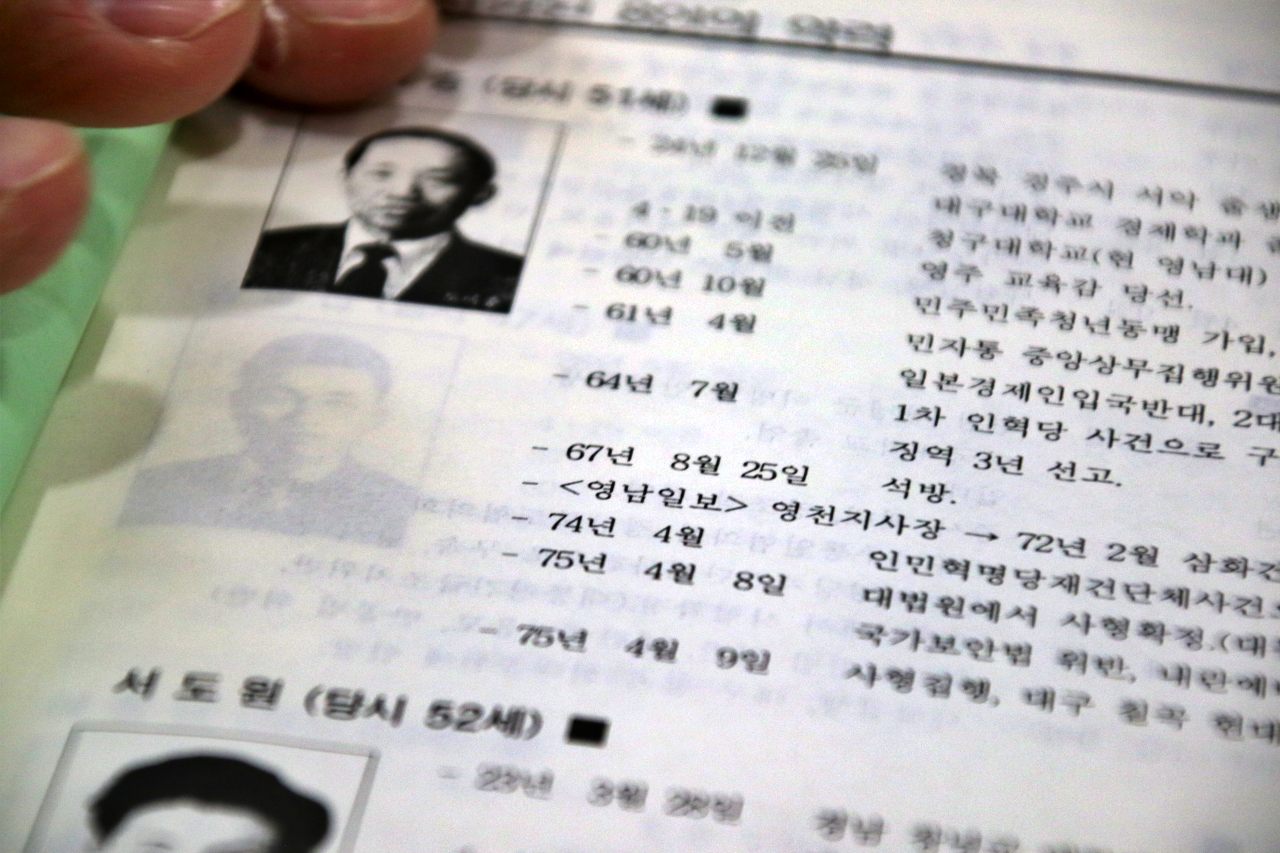 약력
(당시 51세) ■
- 24년 12월 25일 경북 경주시 서악 출생
대구대학교 경제학과
4·19 이전 청구대학교(현 영남대)
- 60년 5월 영주 교육감 당선.
- 60년 10월 민주민족청년동맹 가입,
- 61년 4월 민자통 중앙상무집행위원
일본경제인입국반대, 2대
- 64년 7월 1차 인혁당 사건으로 구
징역 3년 선고.
- 67년 8월 25일 석방.
- <영남일보> 영천지사장 → 72년 2월 삼화건
- 74년 4월 인민혁명당재건단체사건으
- 75년 4월 8일 대법원에서 사형확정.(대
국가보안법 위반, 내란예
- 75년 4월 9일 사형집행, 대구 칠곡 현대
서 도 원 (당시 52세) ■
- 23년 3월 28일 경남 창녕